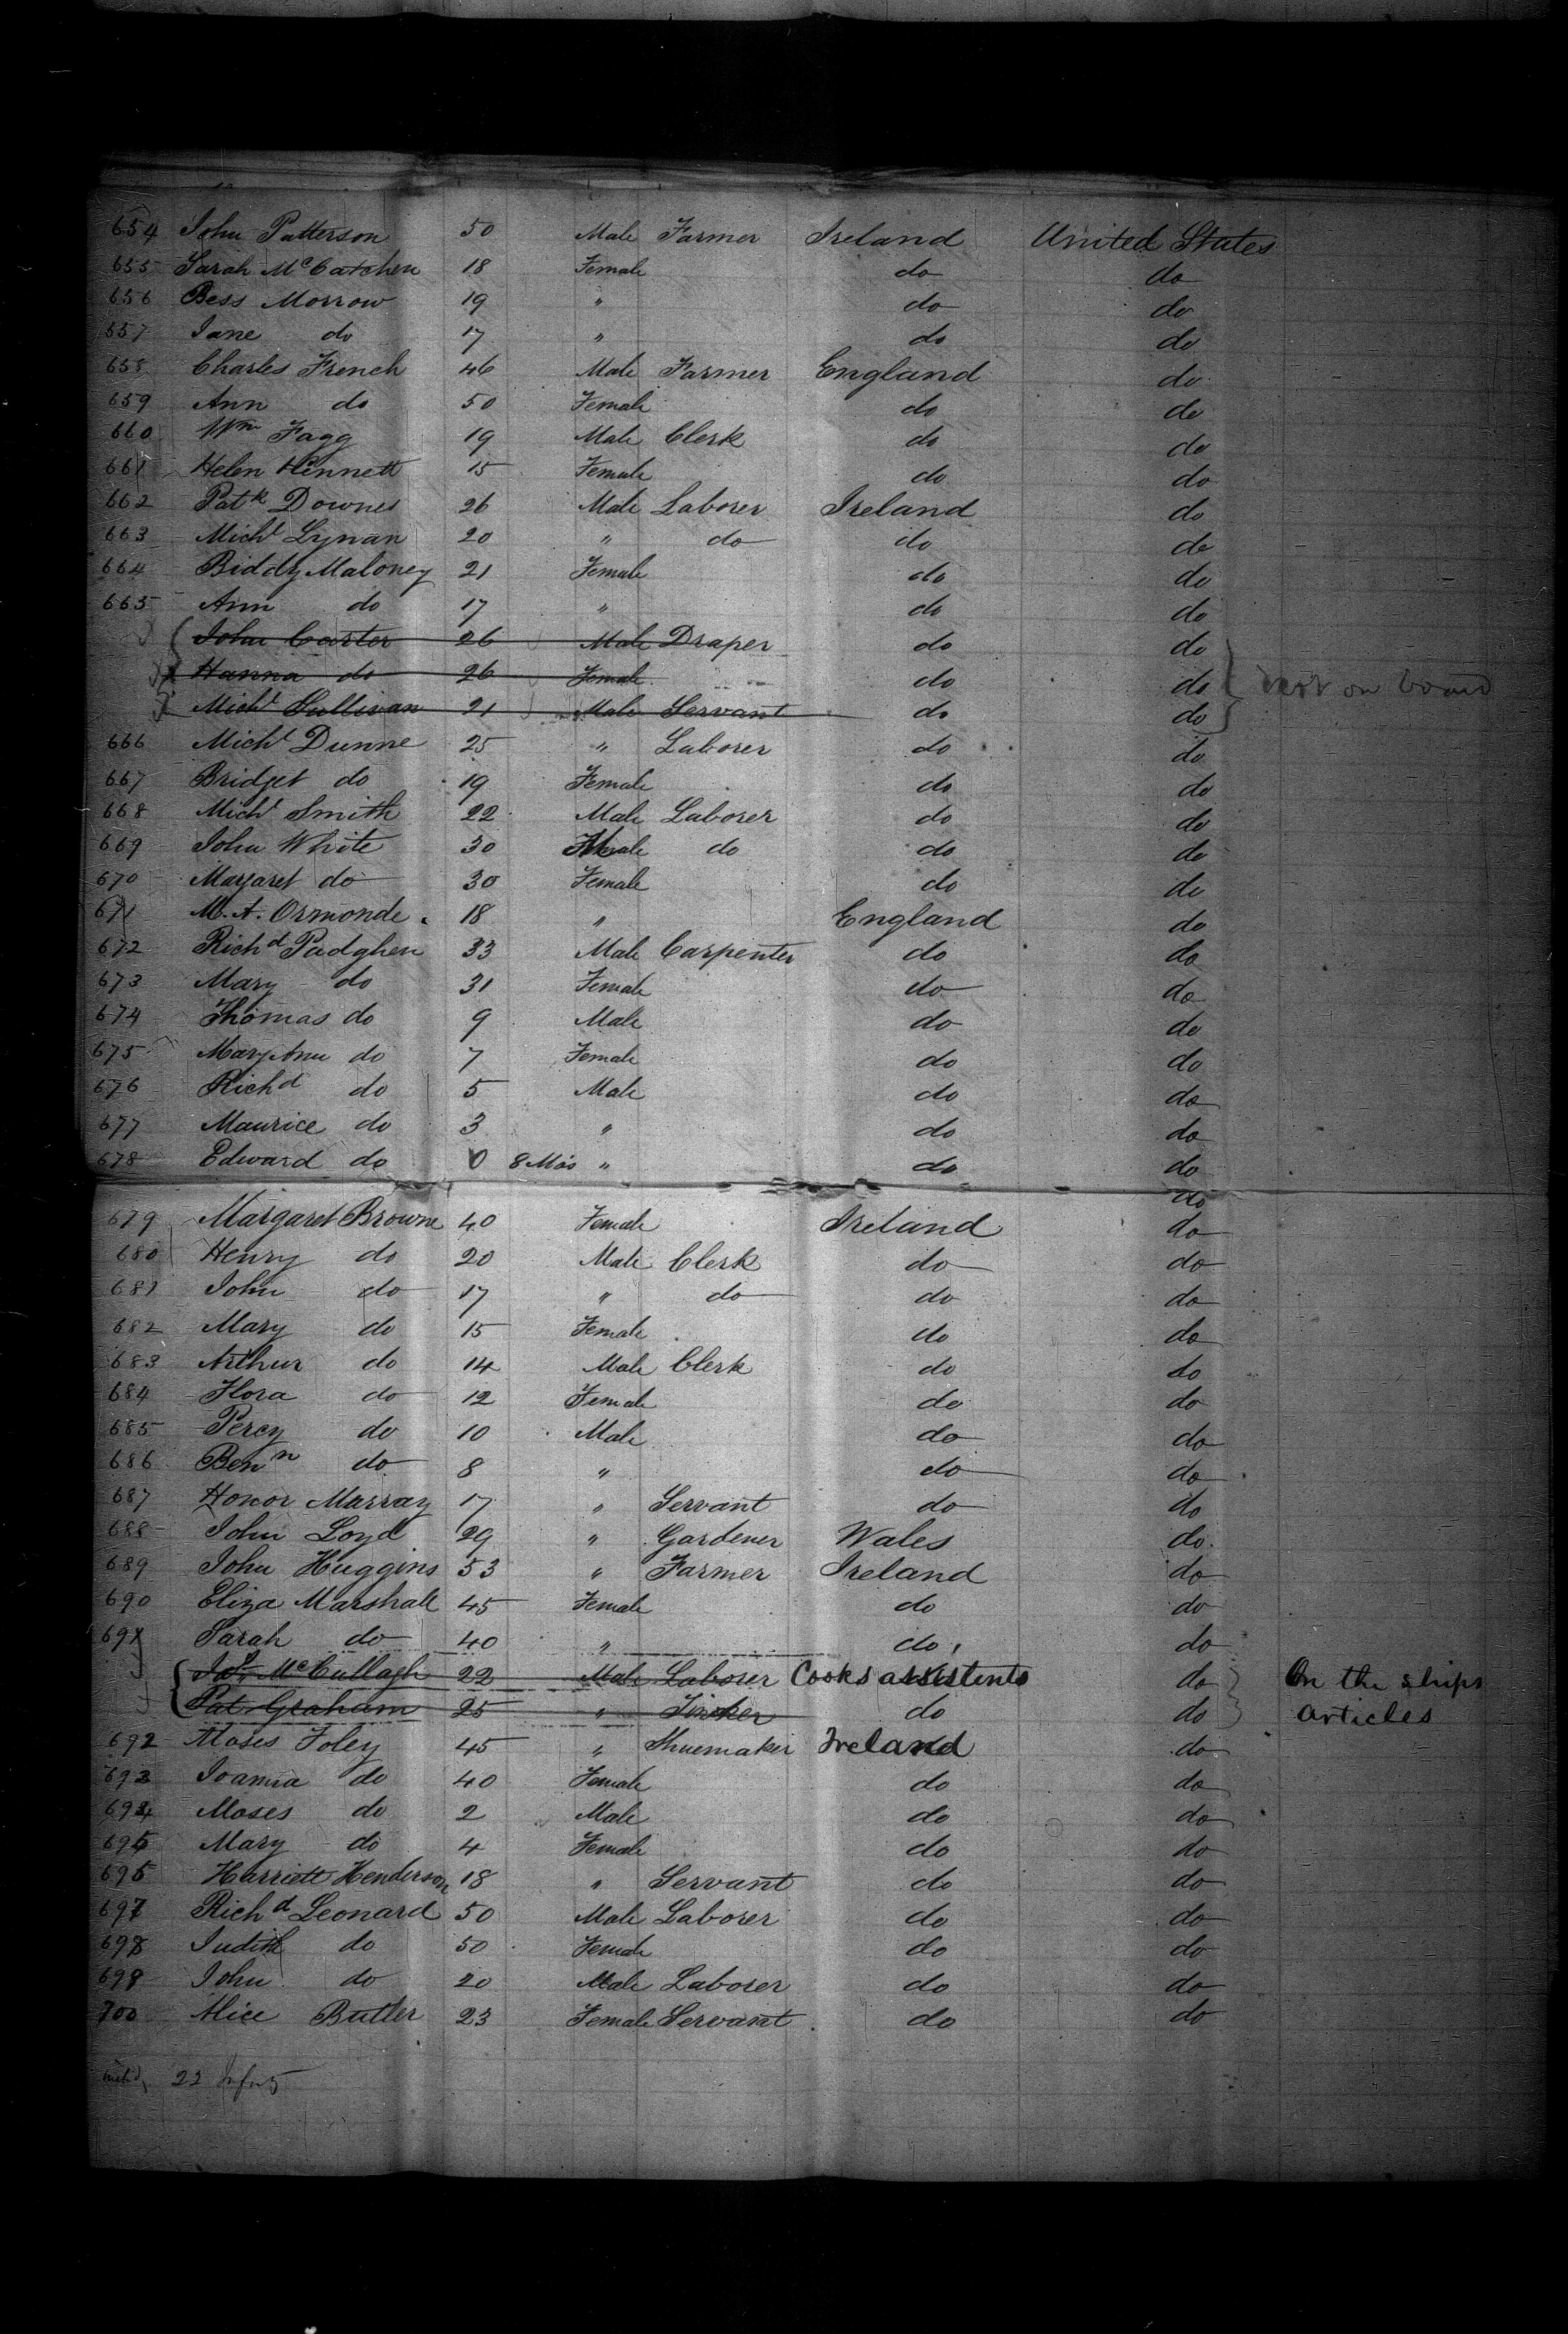 654 John Patterson 50 Male Farmer Ireland United States
655 Sarah McCatchen 18 Female do do
656 Bess Morrow 19 " do do
657 Jane do 17 " do do
658 Charles French 46 Male Farmer England do
659 Ann do 50 Female do do
660 Wm Fagg 19 Male Clerk do do
661 Helen Hennett 15 Female do do
662 Patk Downes 26 Male Laborer Ireland do
663 Michl Lynan 20 " do do do
664 Biddy Maloney 21 Female do do
665 Ann do 17 " do do
John Carter 26 Male Draper do do
Hanna do 26 Female do do not on board
Michl Sullivan 21 Male Servant do do
666 Michl Dunne 25 " Laborer do do
667 Bridget do 19 Female do do
668 Michl Smith 22 Male Laborer do do
669 John White 30 Male do do do
670 Margaret do 30 Female do do
671 M. A. Ormonde 18 " England do
672 Richd Padghen 33 Male Carpenter do do
673 Mary do 31 Female do do
674 Thomas do 9 Male do do
675 Mary Ann do 7 Female do do
676 Richd do 5 Male do do
677 Maurice do 3 " do do
678 Edward do 0 8 Mos " do do
do
679 Margaret Browne 40 Female Ireland do
680 Henry do 20 Male Clerk do do
681 John do 17 " do do do
682 Mary do 15 Female do do
683 Arthur do 14 Male Clerk do do
684 Flora do 12 Female do do
685 Percy do 10 Male do do
686 Benn do 8 " do do
687 Honor Murray 17 " Servant do do
688 John Loyd 29 " Gardener Wales do
689 John Huggins 53 " Farmer Ireland do
690 Eliza Marshall 45 Female do do
691 Sarah do 40 " do do
Jas McCullagh 22 Male Laborer Cooks assistents do On the ships
Pat Graham 25 " Tinker do do articles
692 Moses Foley 45 " Shuemaker Ireland do
693 Joanna do 40 Female do do
694 Moses do 2 Male do do
695 Mary do 4 Female do do
696 Harriett Henderson 18 " Servant do do
697 Richd Leonard 50 Male Laborer do do
698 Judith do 50 Female do do
699 John do 20 Male Laborer do do
700 Alice Butler 23 Female Servant do do
22